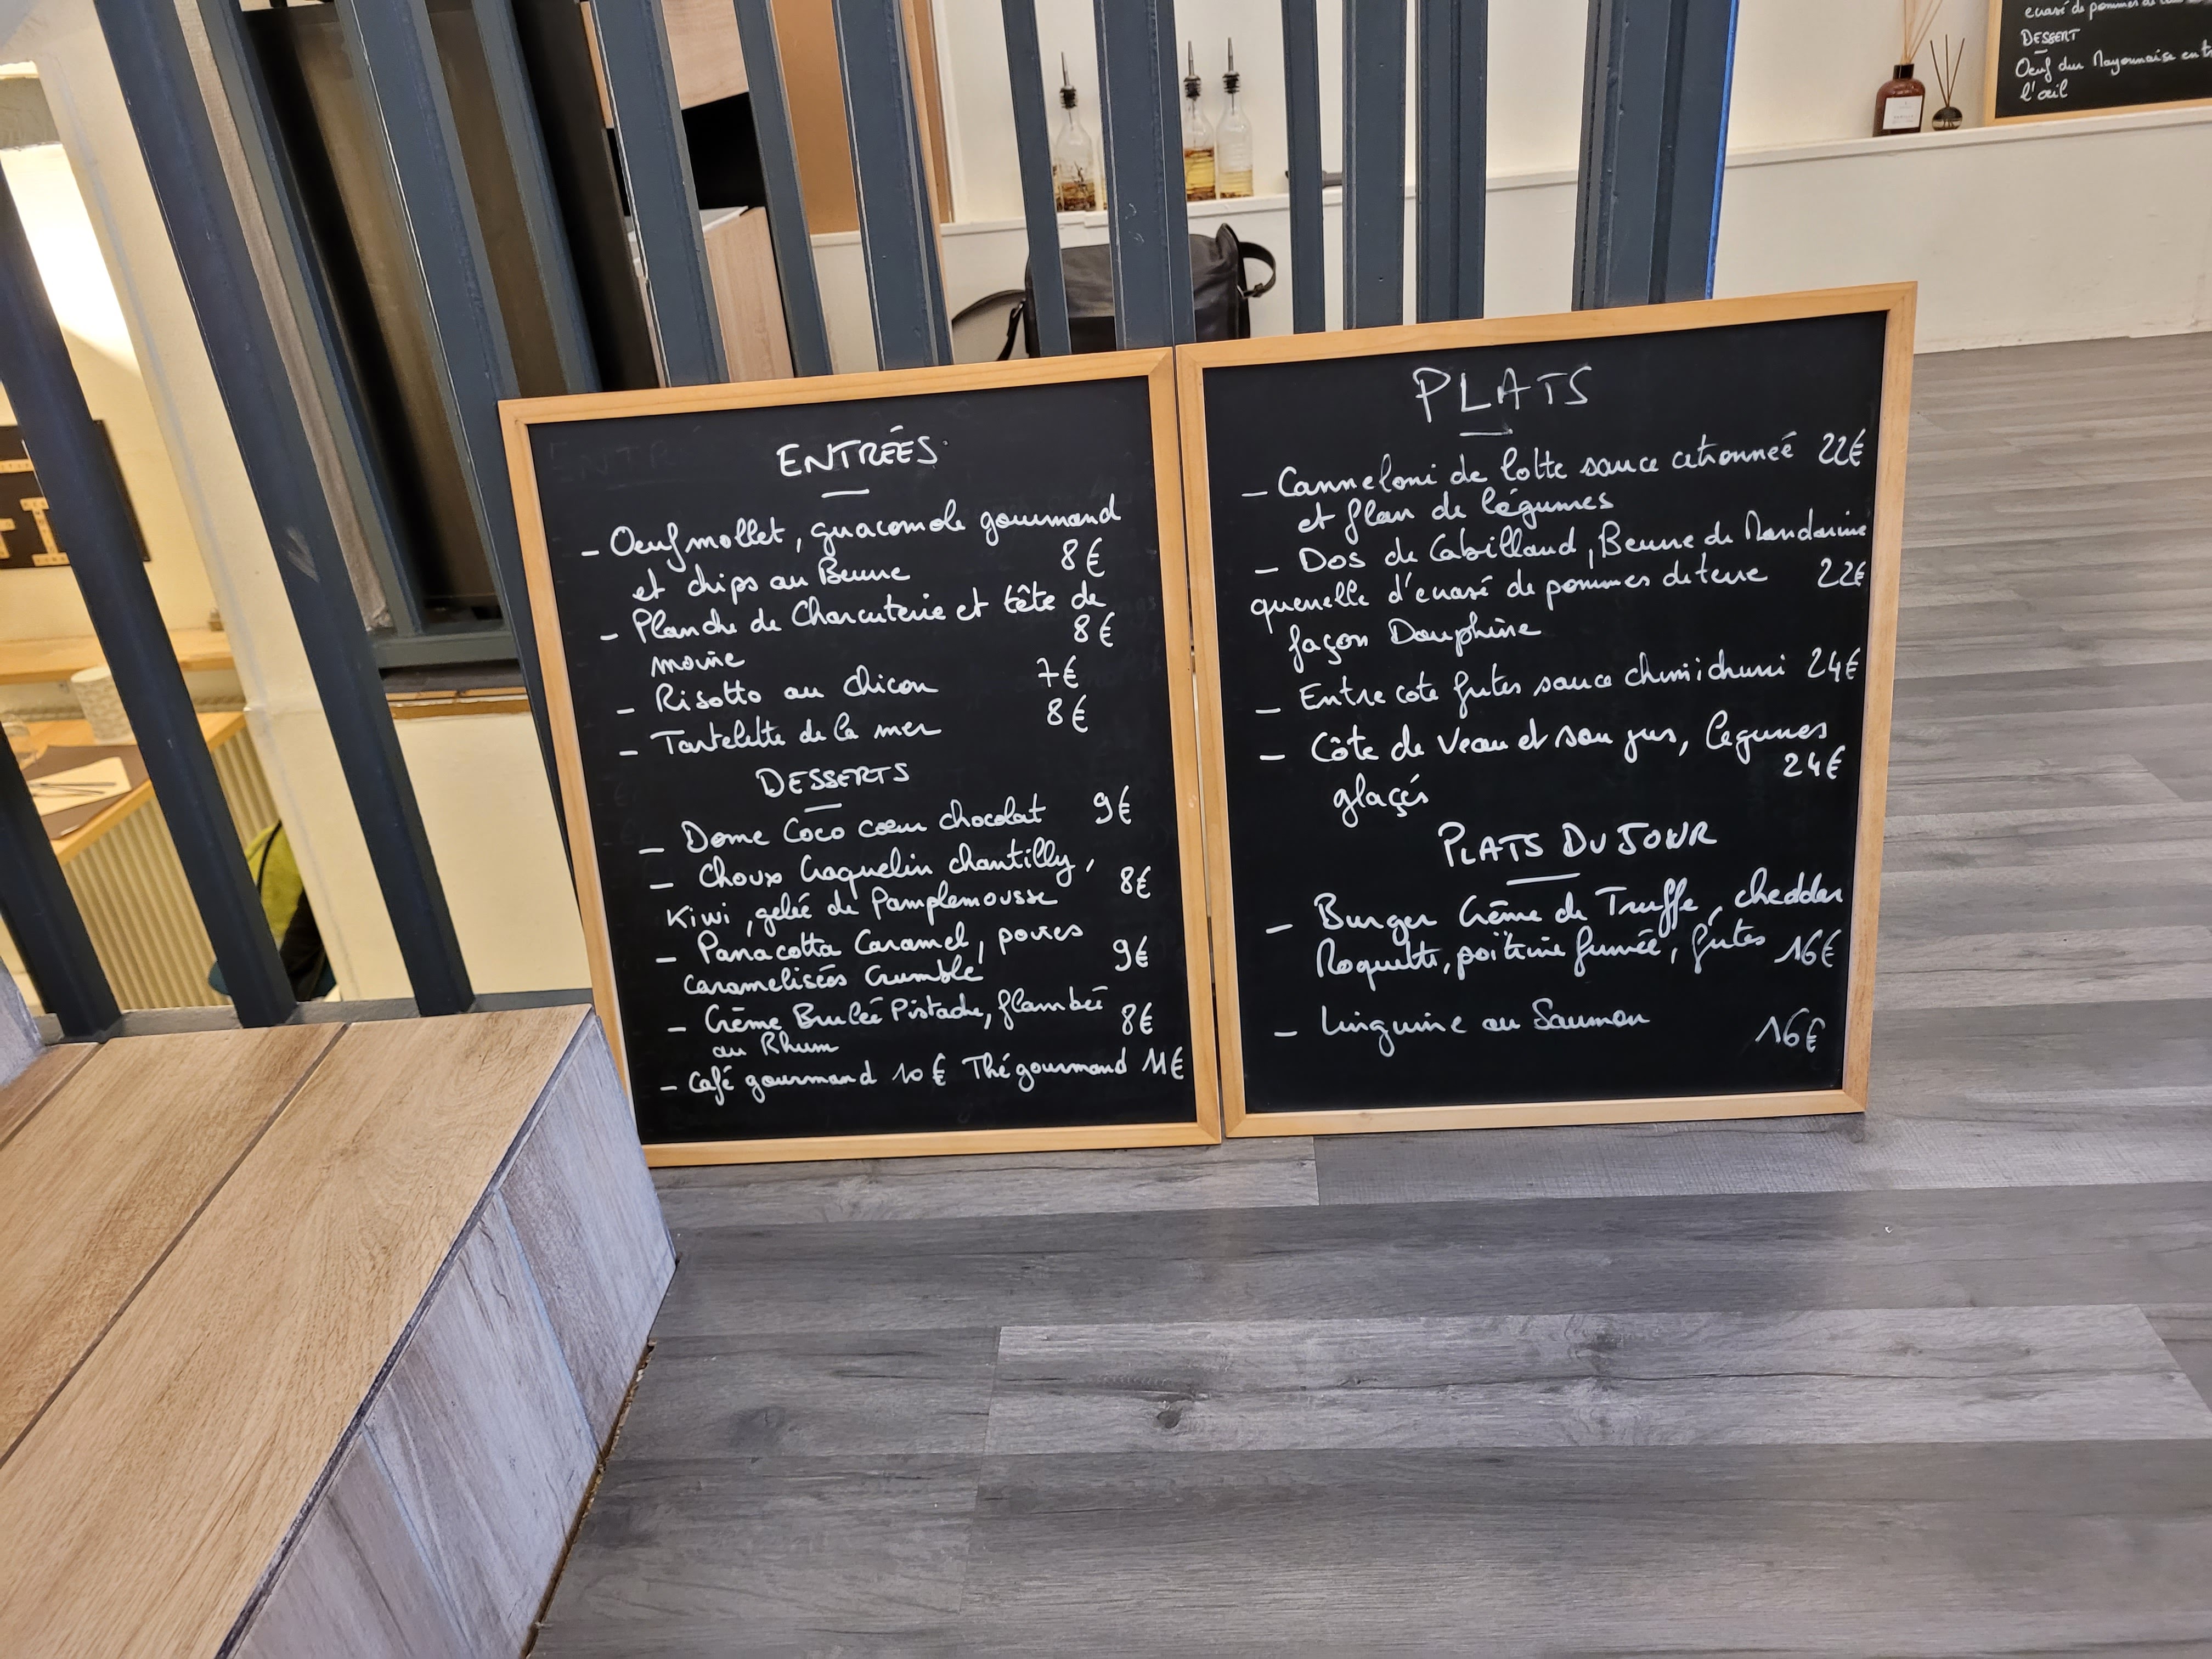 ENTRÉES
- Oeuf mollet, guacomole gourmand
et chips au Beurre 8€
- Planche de Charcuterie et tête de
moine 8€
- Risotto au chicon 7€
- Tartelette de la mer 8€
DESSERTS
- Dome Coco coeur chocolat 9€
- Choux Craquelin chantilly,
Kiwi, gelée de Pamplemousse 8€
- Panacotta Caramel, poires
caramelisées Crumble 9€
- Crème Brulée Pistache, flambée
au Rhum 8€
- Café gourmand 10€ Thé gourmand 11€
PLATS
- Canneloni de lotte sauce citronneé 22€
et flan de légumes
- Dos de Cabillaud, Beurre de Mandarine
quenelle d'ecrasé de pommes de terre 22€
façon Dauphine
- Entre cote frites sauce chimichurri 24€
- Côte de Veau et son jus, legumes
glaçés 24€
PLATS DU JOUR
- Burger Crème de Truffe, cheddar
Roquette, poitrine fumée, frites 16€
- Linguine au Saumon 16€
ecrasé de pommes de
DESSERT
Oeuf dur Mayonnaise en
l'œil